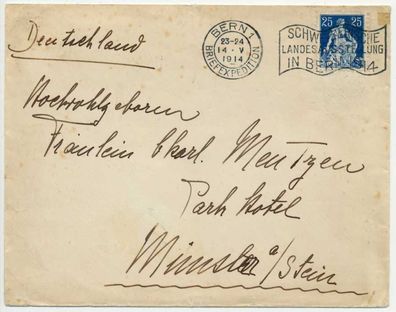 Deutschland
BERN 1
23-24
14 · V
1914
BRIEFEXPEDITION
25 25
SCHWEIZERISCHE
LANDESAUSSTELLUNG
IN BERN 1914
Hochwohlgeboren
Fräulein Charl. Mentzen
Park Hotel
Münster a/Stein